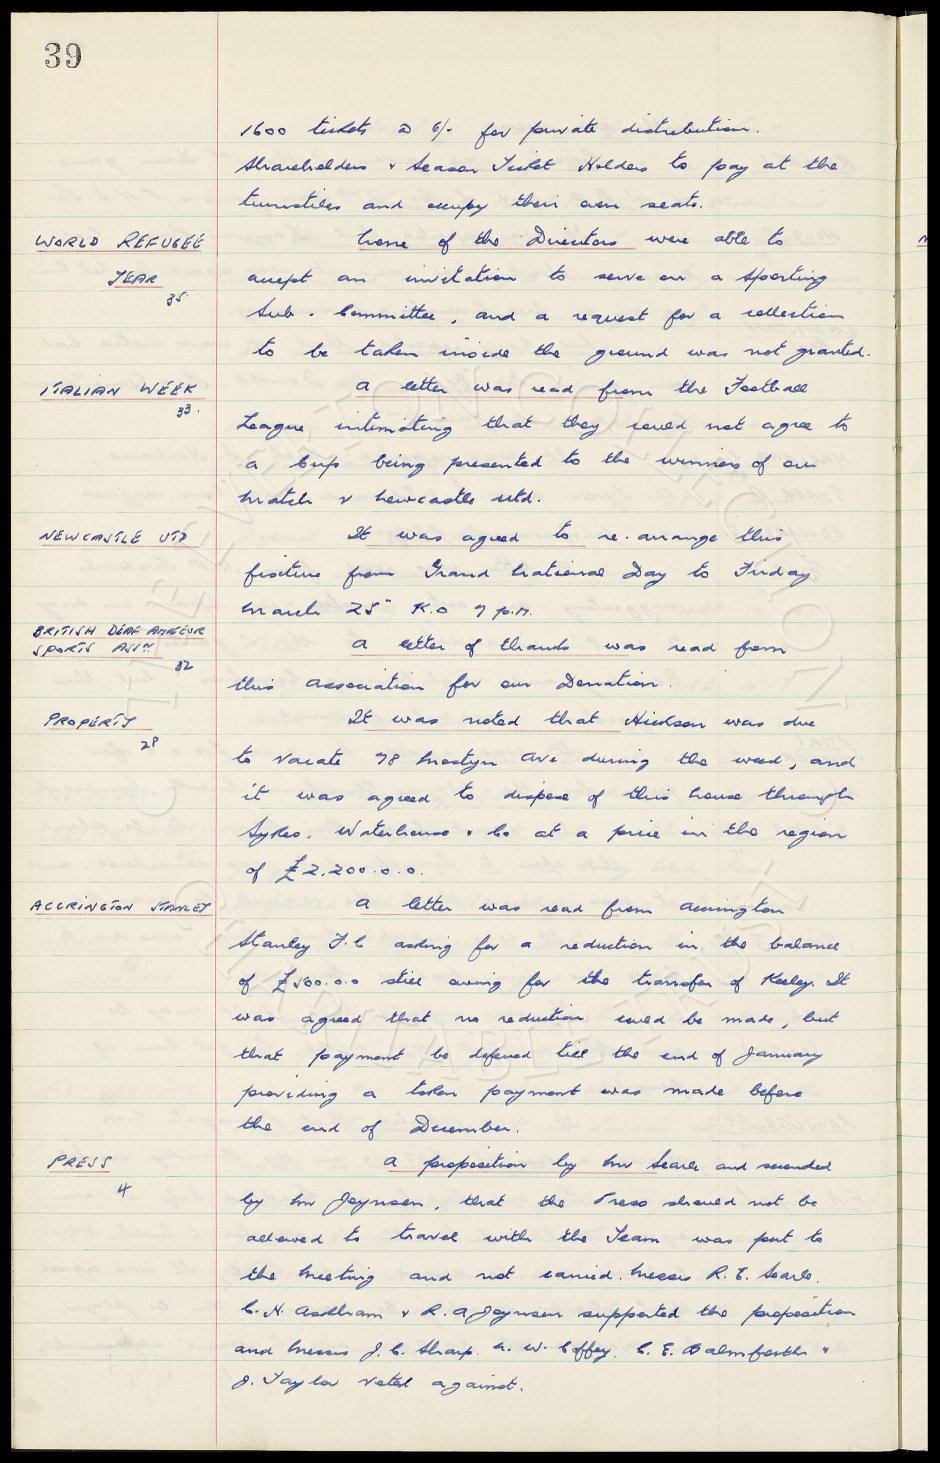 39
1600 tickets @ 6/- for private distribution.
Shareholders & Season Ticket Holders to pay at the
turnstiles and occupy their own seats.
WORLD REFUGEE
YEAR
35
None of the Directors were able to
accept an invitation to serve on a Sporting
Sub-Committee, and a request for a collection
to be taken inside the ground was not granted.
ITALIAN WEEK
33.
A letter was read from the Football
League intimating that they could not agree to
a Cup being presented to the winners of our
match v Newcastle Utd.
NEWCASTLE UTD
It was agreed to re-arrange this
fixture from Grand National Day to Friday
March 25 K.O 7 p.m.
BRITISH DEAF AMATEUR
SPORTS ASSN
32
A letter of thanks was read from
this Association for our Donation.
PROPERTY
28
It was noted that Hickson was due
to vacate 78 Mostyn Ave during the week, and
it was agreed to dispose of this house through
Sykes. Waterhouse & Co at a price in the region
of £2.200.0.0.
ACCRINGTON STANLEY
A letter was read from Accrington
Stanley F.C asking for a reduction in the balance
of £500.0.0 still owing for the transfer of Keeley. It
was agreed that no reduction could be made, but
that payment be deferred till the end of January
providing a token payment was made before
the end of December.
PRESS
4
A proposition by Mr Searle and seconded
by Mr Joynson, that the Press should not be
allowed to travel with the Team was put to
the Meeting and not carried. Messrs R. E. Searle.
C. H. Askham & R. A Joynson supported the proposition
and Messrs J. C. Sharp. N. W. Coffey. C. E. Balmforth &
J. Taylor voted against.